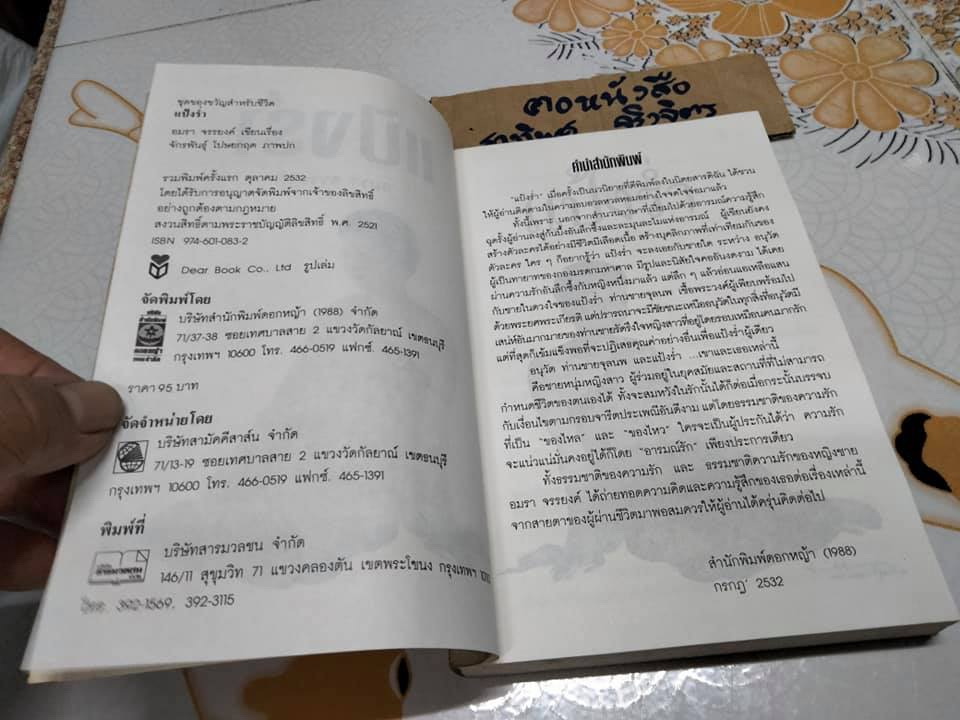 ชุดของขวัญสำหรับชีวิต
แป้งร่ำ
อมรา จรรยงค์ เขียนเรื่อง
จักรพันธุ์ โปษยกฤต ภาพปก
รวมพิมพ์ครั้งแรก ตุลาคม 2532
โดยได้รับการอนุญาตจัดพิมพ์จากเจ้าของลิขสิทธิ์
อย่างถูกต้องตามกฎหมาย
สงวนสิทธิ์ตามพระราชบัญญัติลิขสิทธิ์ พ.ศ. 2521
ISBN 974-601-083-2
Dear Book Co., Ltd รูปเล่ม
จัดพิมพ์โดย
บริษัทสำนักพิมพ์ดอกหญ้า (1988) จำกัด
71/37-38 ซอยเทศบาลสาย 2 แขวงวัดกัลยาณ์ เขตธนบุรี
กรุงเทพฯ 10600 โทร. 466-0519 แฟกซ์. 465-1391
ราคา 95 บาท
จัดจำหน่ายโดย
บริษัทสามัคคีสาส์น จำกัด
71/13-19 ซอยเทศบาลสาย 2 แขวงวัดกัลยาณ์ เขตธนบุรี
กรุงเทพฯ 10600 โทร. 466-0519 แฟกซ์. 465-1391
พิมพ์ที่
บริษัทสารมวลชน จำกัด
146/11 สุขุมวิท 71 แขวงคลองตัน เขตพระโขนง กรุงเทพฯ
โทร. 392-1569, 392-3115
ฅอหนังสือ
คำนำสำนักพิมพ์
"แป้งร่ำ" เมื่อครั้งเป็นนวนิยายที่ตีพิมพ์ลงในนิตยสารดิฉัน ได้ชวน
ให้ผู้อ่านติดตามในความอบอวลหวลหอมอย่างใจจดใจจ่อมาแล้ว
ทั้งนี้เพราะ นอกจากสำนวนภาษาที่เปี่ยมไปด้วยอารมณ์ความรู้สึก
ฉุดรั้งผู้อ่านลงสู่ก้นบึ้งอันลึกซึ้งและละมุนละไมแห่งอารมณ์ ผู้เขียนยังคง
สร้างตัวละครได้อย่างมีชีวิตมีเลือดเนื้อ สร้างบุคลิกภาพที่เท่าเทียมกันของ
ตัวละคร ใคร ๆ ก็อยากรู้ว่า แป้งร่ำ จะลงเอยกับชายใด ระหว่าง อนุวัต
ผู้เป็นทายาทของกองมรดกมหาศาล มีรูปและนิสัยใจคออันงดงาม ได้เคย
ผ่านความรักอันลึกซึ้งกับหญิงหนึ่งมาแล้ว แต่ลึก ๆ แล้วอ่อนแอเหลือแสน
กับชายในดวงใจของแป้งร่ำ ท่านชายจุลนพ เชื้อพระวงศ์ผู้เพียบพร้อมไป
ด้วยพระยศพระเกียรติ แต่ปรารถนาจะมีชัยชนะเหนืออนุวัตในทุกสิ่งที่อนุวัตมี
เสน่ห์อันมากมายของท่านชายรัดรึงใจหญิงสาวที่อยู่โดยรอบเหมือนคนมากรัก
แต่ที่สุดก็เข้มแข็งพอที่จะปฏิเสธคุณค่าอย่างอื่นเพื่อแป้งร่ำผู้เดียว
อนุวัต ท่านชายจุลนพ และแป้งร่ำ ...เขาและเธอเหล่านี้
คือชายหนุ่มหญิงสาว ผู้ร่วมอยู่ในยุคสมัยและสถานที่ที่ไม่สามารถ
กำหนดชีวิตของตนเองได้ ทั้งจะสมหวังในรักนั้นได้ก็ต่อเมื่อกระนั้นบรรจบ
กับเงื่อนไขตามกรอบจารีตประเพณีอันดีงาม แต่โดยธรรมชาติของความรัก
ที่เป็น "ของไหล" และ "ของไหว" ใครจะเป็นผู้ประกันได้ว่า ความรัก
จะแน่วแน่มั่นคงอยู่ได้ก็โดย "อารมณ์รัก" เพียงประการเดียว
ทั้งธรรมชาติของความรัก และ ธรรมชาติความรักของหญิงชาย
อมรา จรรยงค์ ได้ถ่ายทอดความคิดและความรู้สึกของเธอต่อเรื่องเหล่านี้
จากสายตาของผู้ผ่านชีวิตมาพอสมควรให้ผู้อ่านได้ครุ่นคิดต่อไป
สำนักพิมพ์ดอกหญ้า (1988)
กรกฎ' 2532